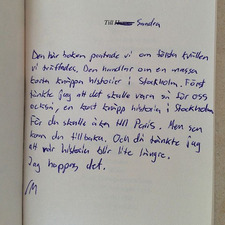 Till Sandra
Den här boken pratade vi om första kvällen
vi träffades. Den handlar om en massa
korta knäppa historier i Stockholm. Först
tänkte jag att det skulle vara så för oss
också, en kort knäpp historia i Stockholm.
För du skulle åka till Paris. Men sen
kom du tillbaka. Och då tänkte jag
att vår historia blir lite längre.
Jag hoppas det.
M